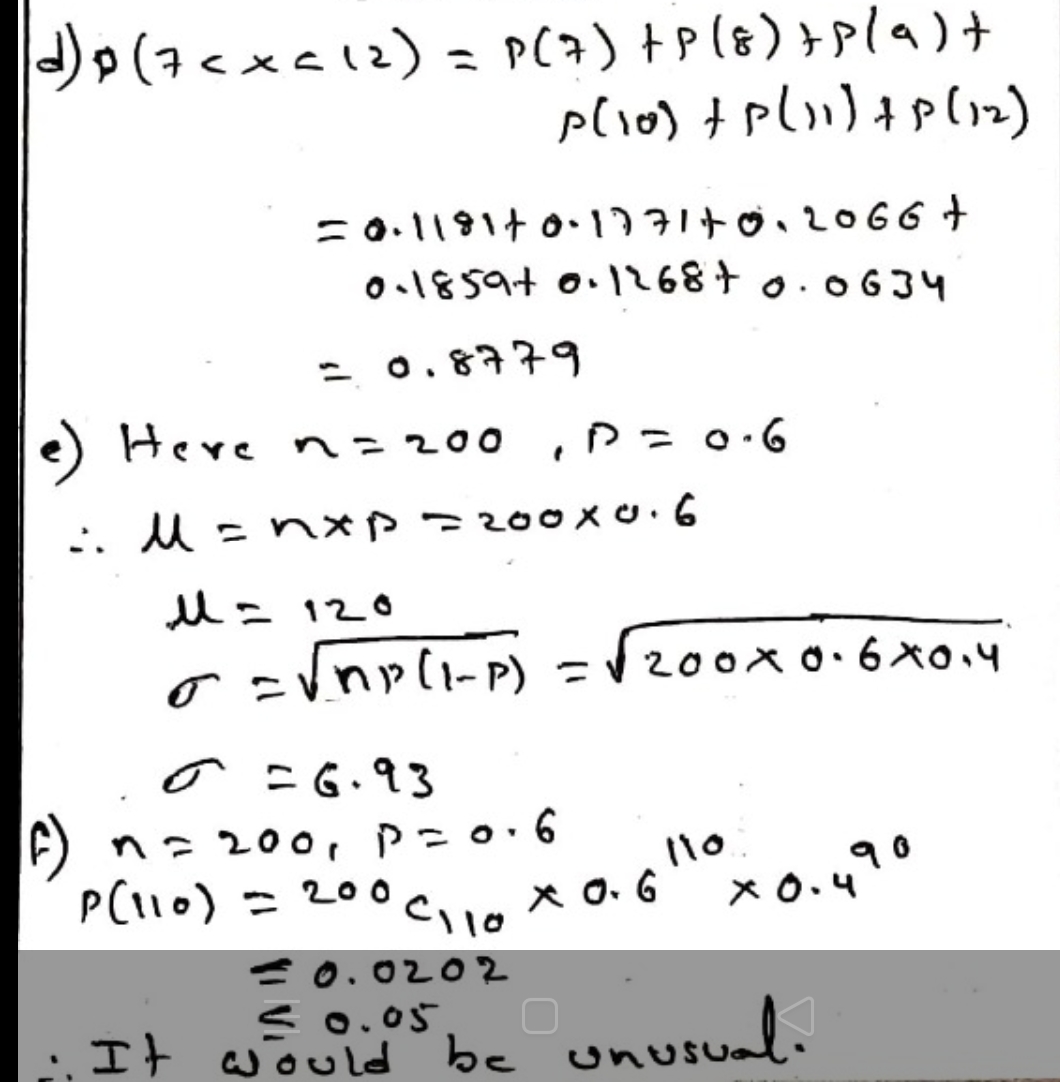 d) P(7<x<12) = P(7) + P(8) + P(9) +
P(10) + P(11) + P(12)
= 0.1181 + 0.1771 + 0.2066 +
0.1859 + 0.1268 + 0.0634
= 0.8779
e) Here n = 200 , P = 0.6
∴ μ = n×p = 200×0.6
μ = 120
σ = √np(1-P) = √200×0.6×0.4
σ = 6.93
f) n = 200, P = 0.6
P(110) = 200C110 × 0.6^110 × 0.4^90
= 0.0202
≤ 0.05
∴ It would be unusual.